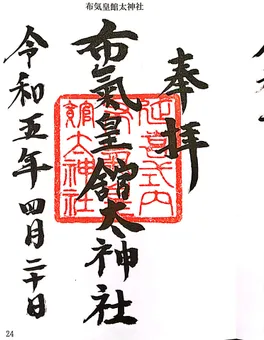 布気皇館太神社
奉拝
布氣皇館太神社
延喜式内
布氣皇
館太神社
令和五年四月二十日
24